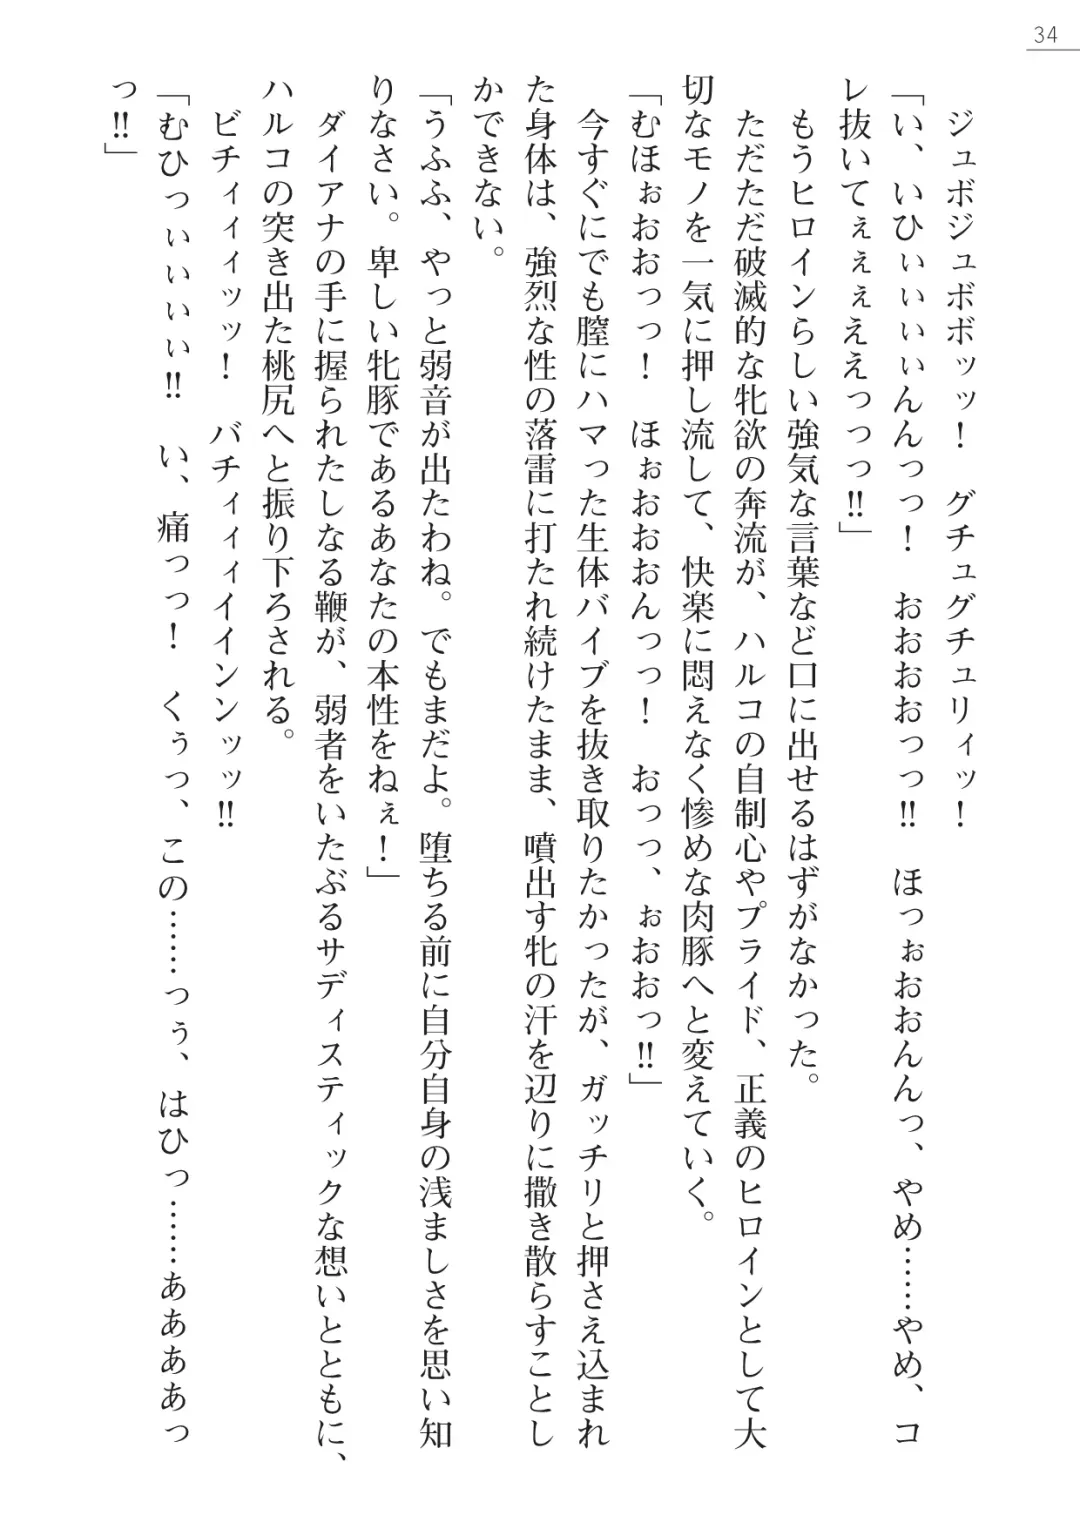 34
ジュボジュボボッッ！　グチュグチュリィッ！
「い、いひぃぃぃぃんんっっ！　おおおおっっ!!　ほっぉおおんんっ、やめ……やめ、コ
レ抜いてぇぇぇええっっっ!!」
もうヒロインらしい強気な言葉など口に出せるはずがなかった。
ただただ破滅的な牝欲の奔流が、ハルコの自制心やプライド、正義のヒロインとして大
切なモノを一気に押し流して、快楽に悶えなく惨めな肉豚へと変えていく。
「むほぉおおっっ！　ほぉおおおんっっ！　おっっ、ぉおおっ!!」
今すぐにでも膣にハマった生体バイブを抜き取りたかったが、ガッチリと押さえ込まれ
た身体は、強烈な性の落雷に打たれ続けたまま、噴出す牝の汗を辺りに撒き散らすことし
かできない。
「うふふ、やっと弱音が出たわね。でもまだよ。堕ちる前に自分自身の浅ましさを思い知
りなさい。卑しい牝豚であるあなたの本性をねぇ！」
ダイアナの手に握られたしなる鞭が、弱者をいたぶるサディスティックな想いとともに、
ハルコの突き出た桃尻へと振り下ろされる。
ビチィィィッッ！　バチィィィイインンッッ!!
「むひっぃぃぃぃ!!　い、痛っっ！　くぅっ、この……っぅ、はひっ……ああああっ
っ!!」